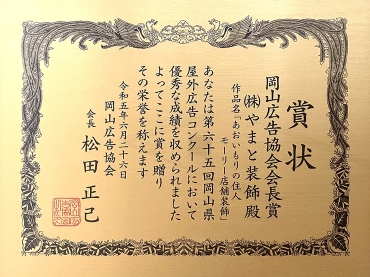 賞状
岡山広告協会会長賞
㈱やまと装飾 殿
作品名「あおいもりの住人
モーリー店舗装飾」
あなたは第六十五回岡山県
屋外広告コンクールにおいて
優秀な成績を収められました
よってここに賞を贈り
その栄誉を称えます
令和五年六月二十六日
岡山広告協会
会長 松田正己